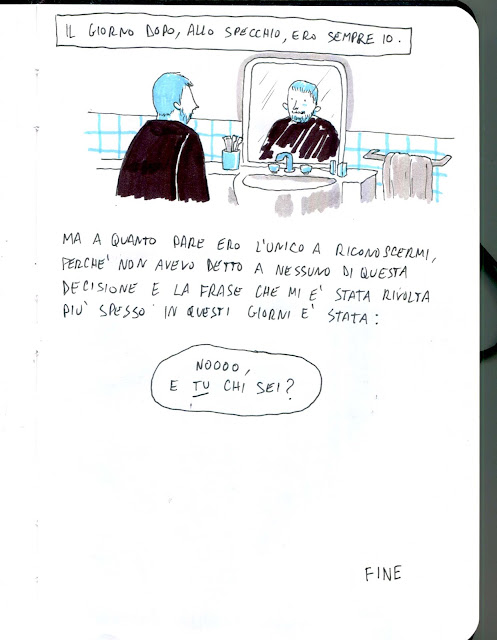 IL GIORNO DOPO, ALLO SPECCHIO, ERO SEMPRE IO.
MA A QUANTO PARE ERO L'UNICO A RICONOSCERMI,
PERCHE' NON AVEVO DETTO A NESSUNO DI QUESTA
DECISIONE E LA FRASE CHE MI E' STATA RIVOLTA
PIU' SPESSO IN QUESTI GIORNI E' STATA:
NOOOO,
E TU CHI SEI?
FINE